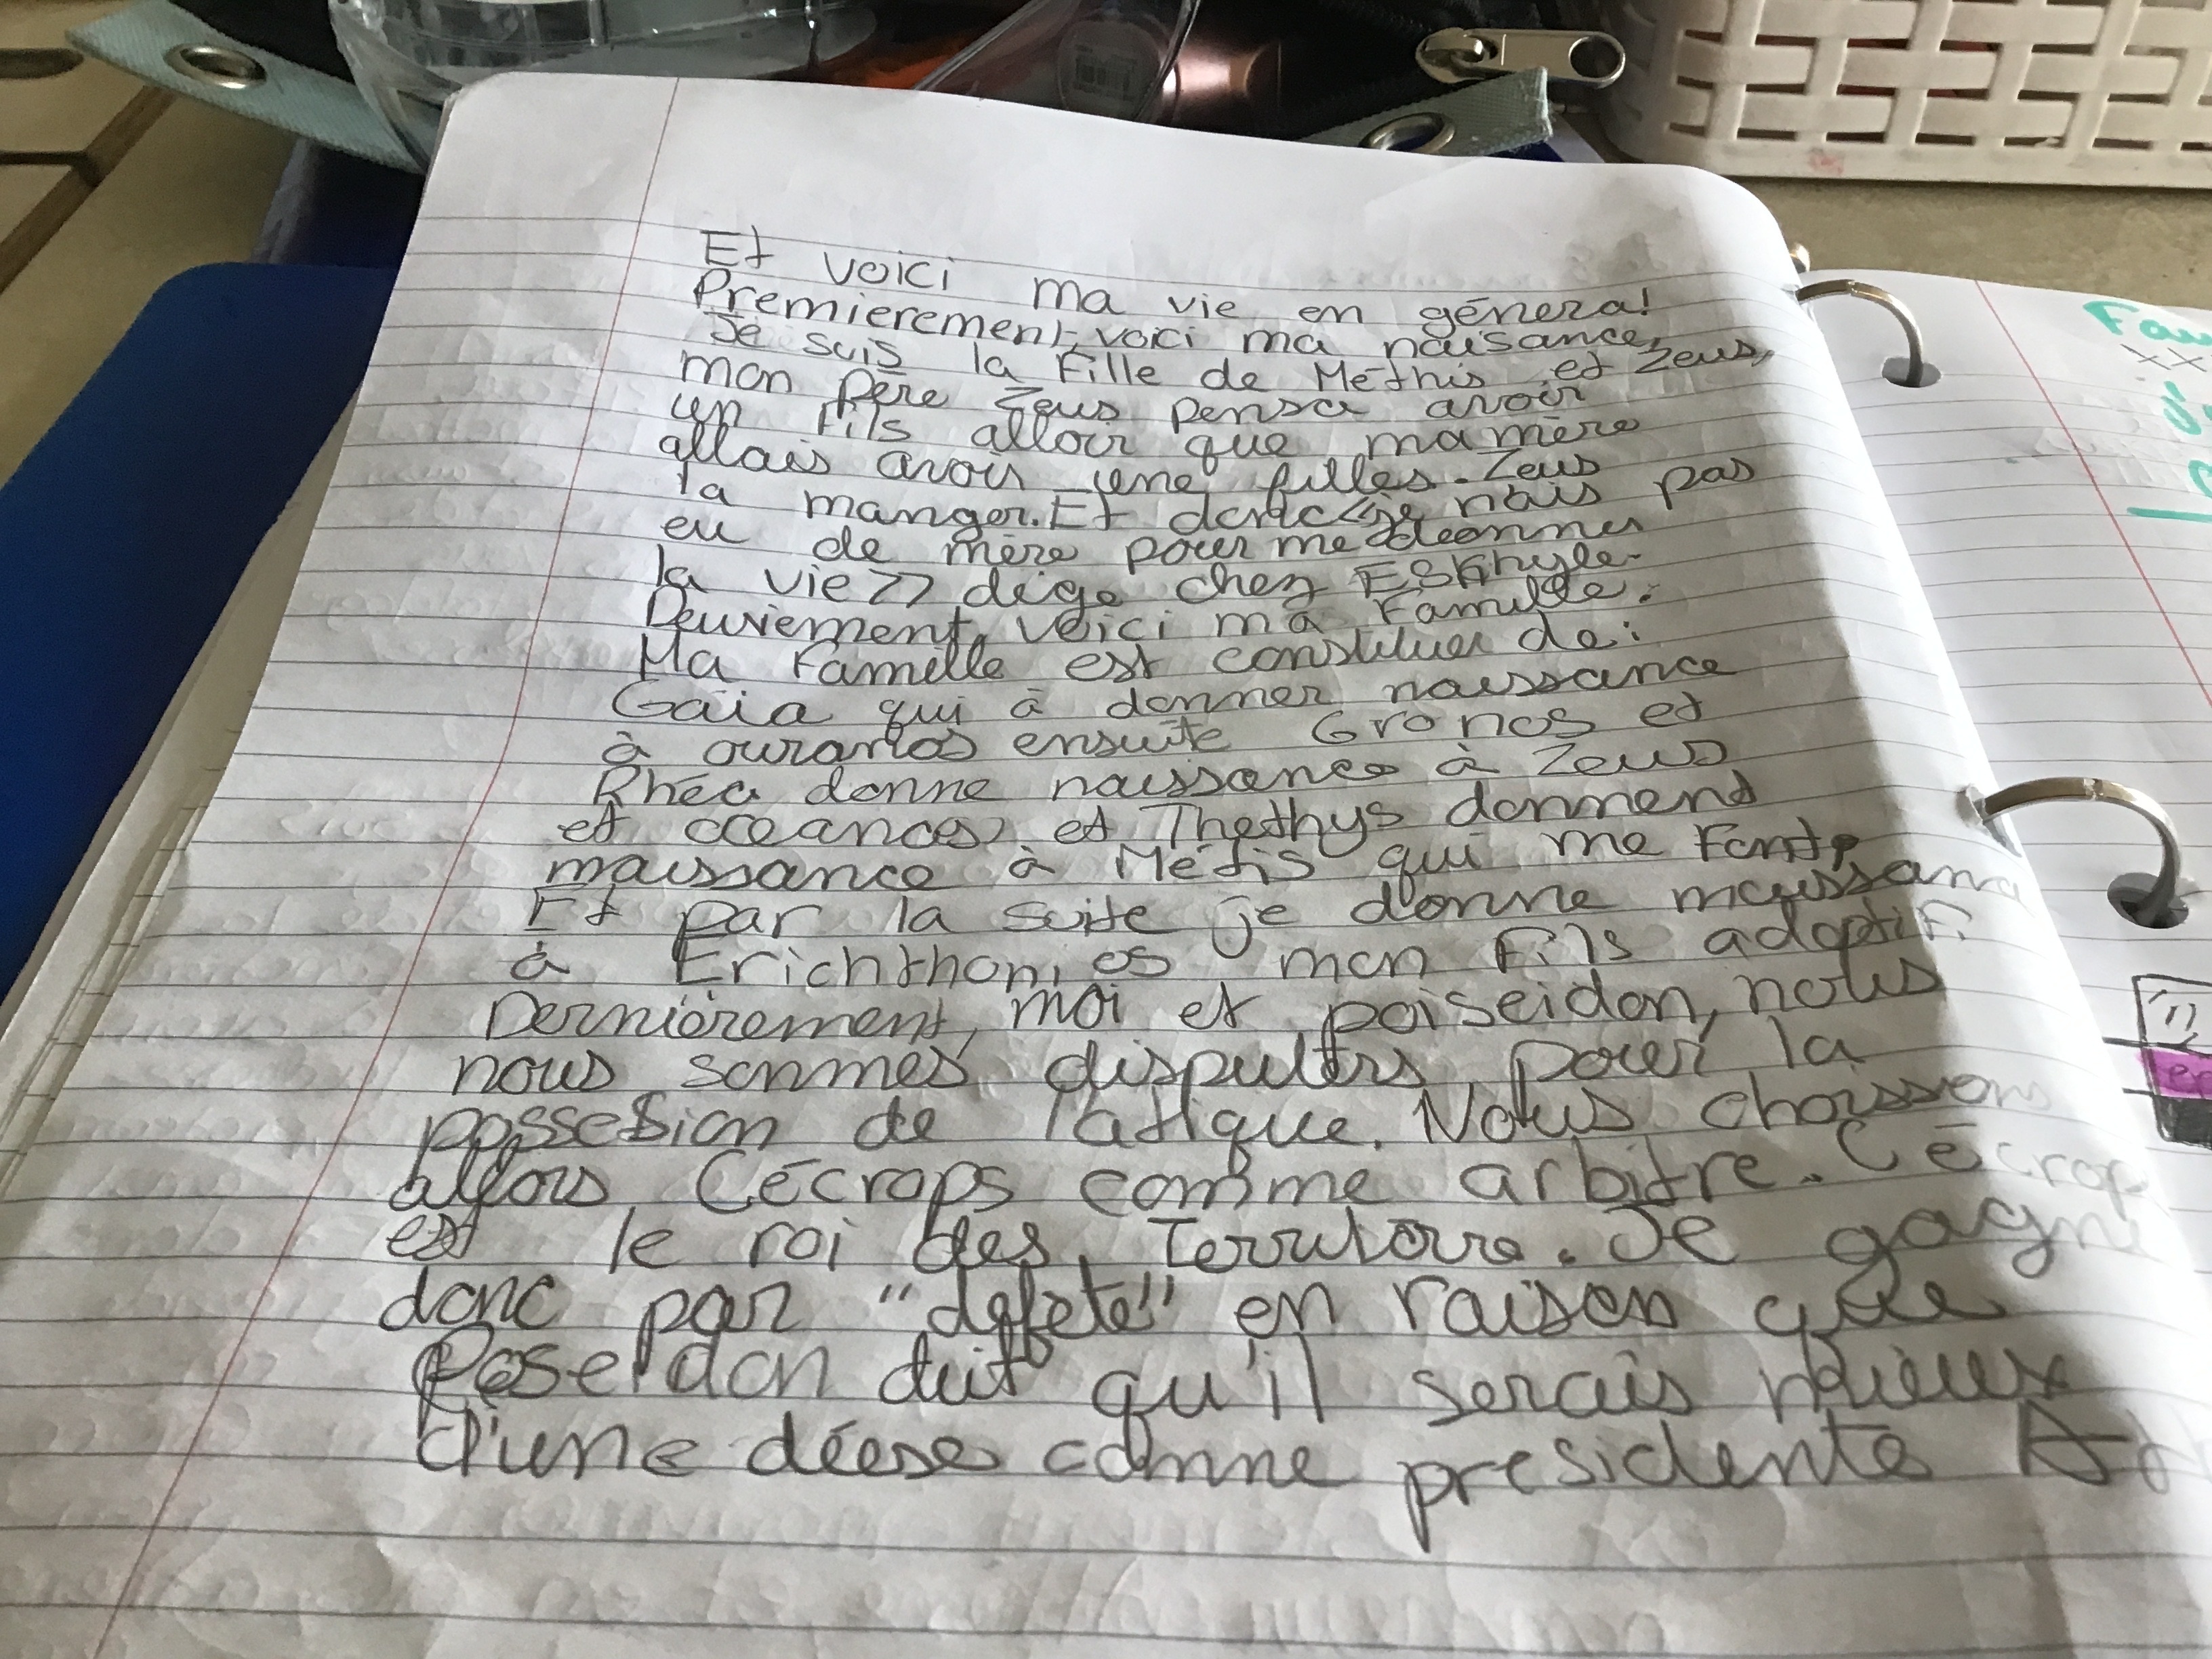 Et voici ma vie en général
Premierement, voici ma naisance,
Je suis la fille de Méthis et Zeus,
mon père Zeus pensa avoir
un fils alloir que ma mère
allais avoir une filles. Zeus
la manger. Et donc << je nais pas
eu de mère pour me donner
la vie >> dige chez ESKhyle.
Deuxiement, voici ma famille.
Ma famille est constituer de :
Gaïa qui à donner naissance
à ouranos ensuite Cronos et
Rhéa donne naissance à Zeus
et océanos, et Thethys donnent
naissance à Métis qui me font
Et par la suite je donne naissanc
à Erichthonios mon fils adoptif.
Dernièrement, moi et poiseidon, nous
nous sommes disputers pour la
possession de l'atique. Nous choissons
allors Cécrops comme arbitre. Cécrop
est le roi des Territoire. Je gagne
donc par "defete" en raison que
Poseidon dit qu'il serais mieux
d'une déese comme presidente
Fav
xx